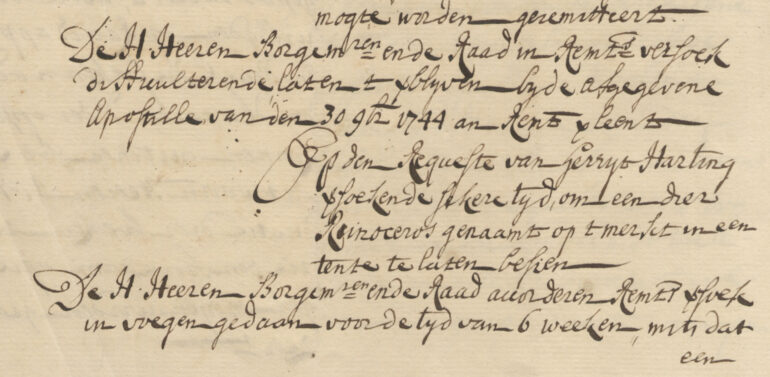 mogte worden geremitteert.
De H Heeren Borgem:ren ende Raad in Remts versoek
difficulterende laten t verblyven by de afgegevene
Apostille van den 30 9br 1744 an Remt verleent
Op den Requeste van Gerryt Harting
versoekende sekere tyd, om een dier
Rijnoceros genaamt op t merkt in een
tente te laten besien
De H. Heeren Borgem:ren ende Raad accorderen Remts versoek
in voegen gedaan voor de tyd van 6 weeken, mits dat
een